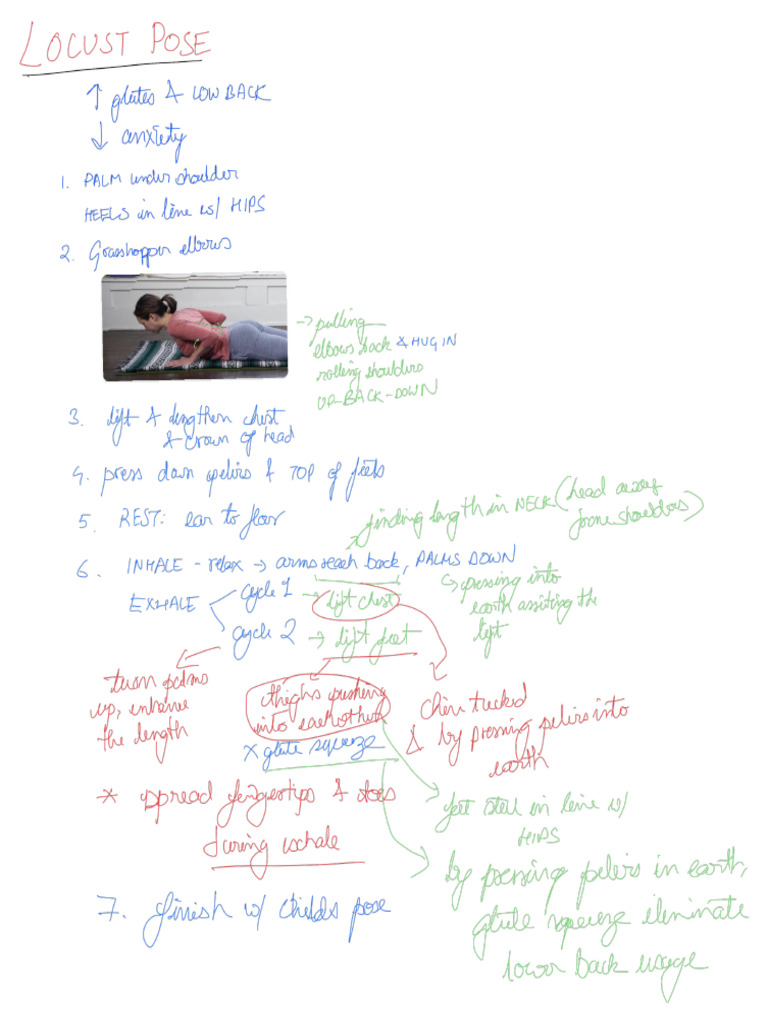 LOCUST POSE
↑ glutes & LOW BACK
↓ anxiety
1. PALM under shoulder
HEELS in line w/ HIPS
2. Grasshopper elbows
→ pulling
elbows back & HUG IN
rolling shoulders
UP-BACK-DOWN
3. lift & lengthen chest
& crown of head
4. press down pelvis & TOP of feets
5. REST: ear to floor
→ finding length in NECK (head away
from shoulders)
6. INHALE - relax → arms reach back, PALMS DOWN
↳ pressing into
earth assiting the
lift
EXHALE
cycle 1 → lift chest
cycle 2 → lift feet
turn palms
up, enhance
the length
thighs pushing
into eachother
* glute squeeze
Chin tucked
& by pressing pelvis into
earth
* spread fingertips & toes
during exhale
feet still in line w/
HIPS
by pressing pelvis in earth,
glute squeeze eliminate
lower back usage
7. finish w/ childs pose